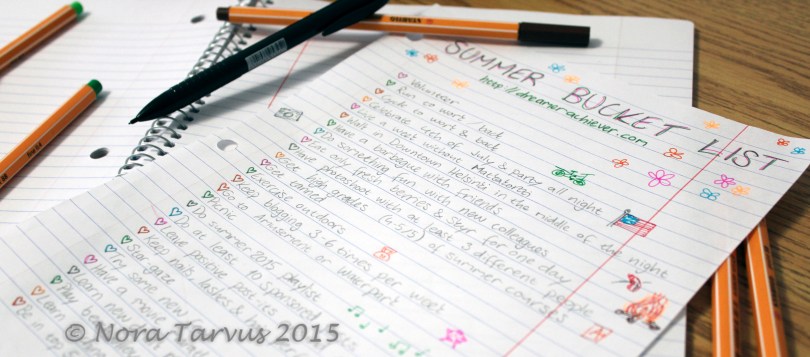 SUMMER BUCKET LIST
http://dreamer-achiever.com
Volunteer
Run to work / back
Cycle to work & back
Celebrate 4th of July & party all night
Live a week without
Walk in Downtown Helsinki in the middle of the night
Have a barbeque with friends
Do something fun with new colleagues
Eat only fresh berries & Skyr for one day
Have photoshoot with at least 3 different people
Get high grades (4-5/5) of summer courses
Get carried
Exercise outdoors
Keep blogging 3-6 times per week
Go to Amusement or waterpark
Picnic
Do summer 2015 playlist
Do at least 10 sponsored
Have positive
Keep nails, lashes &
Star gaze
Try some new
Have a movie
Learn new
Play
Learn
Be in
© Nora Tarvus 2015